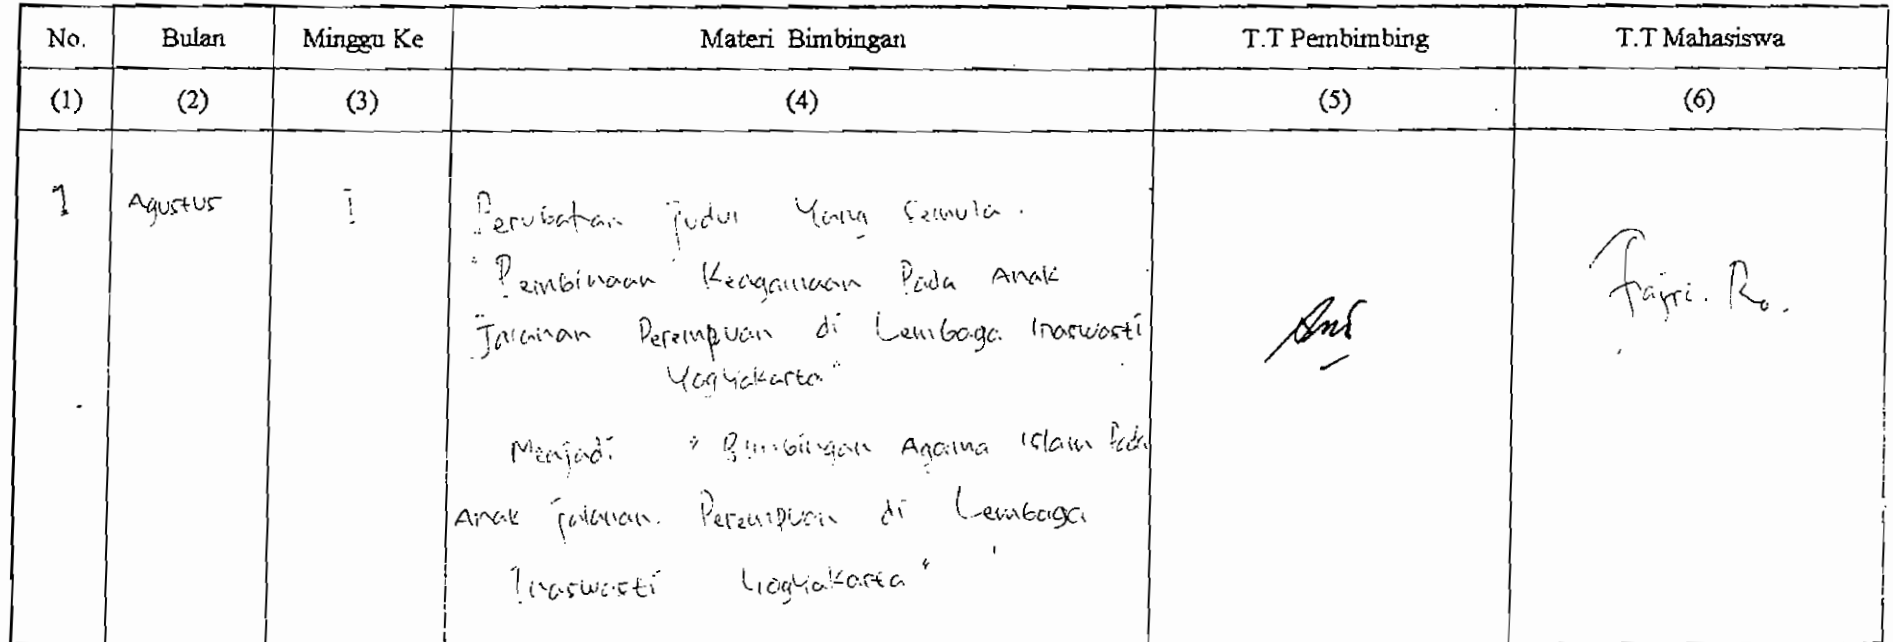 No. Bulan Minggu Ke Materi Bimbingan T.T Pembimbing T.T Mahasiswa
(1) (2) (3) (4) (5) (6)
1 Agustus I Perubahan judul yang semula.
"Pembinaan Keagamaan Pada Anak
Jalanan Perempuan di Lembaga Inaswasti
Yogyakarta"
Menjadi "Bimbingan Agama Islam Pada
Anak jalanan. Perempuan di Lembaga
Inaswasti Yogyakarta"
Fajri. Ro.